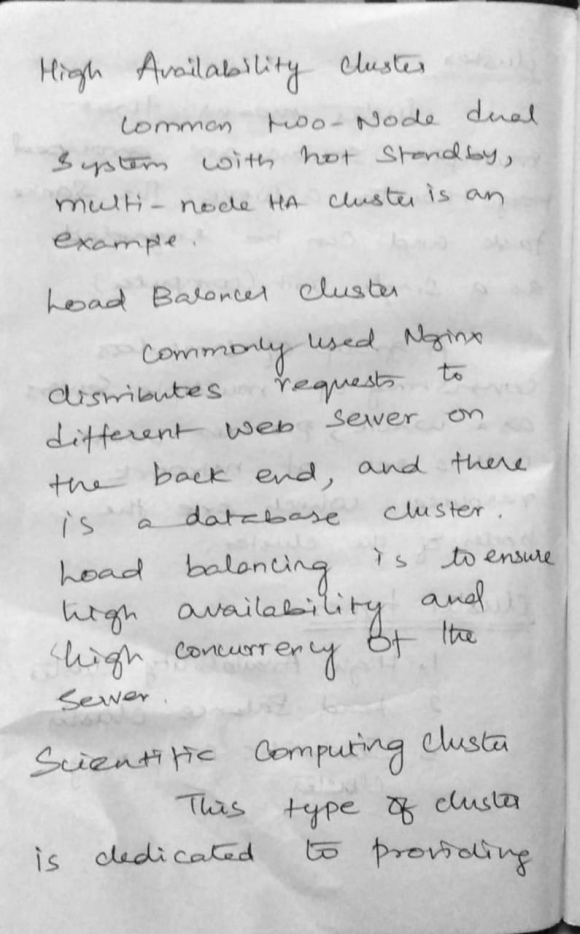 High Availability cluster
Common two-Node dual
System with hot Standby,
multi-node HA cluster is an
example.
Load Balancer cluster
Commonly used Nginx
distributes requests to
different web server on
the back end, and there
is a database cluster.
Load balancing is to ensure
high availability and
high concurrency of the
server.
Scientific Computing Cluster
This type of cluster
is dedicated to providing